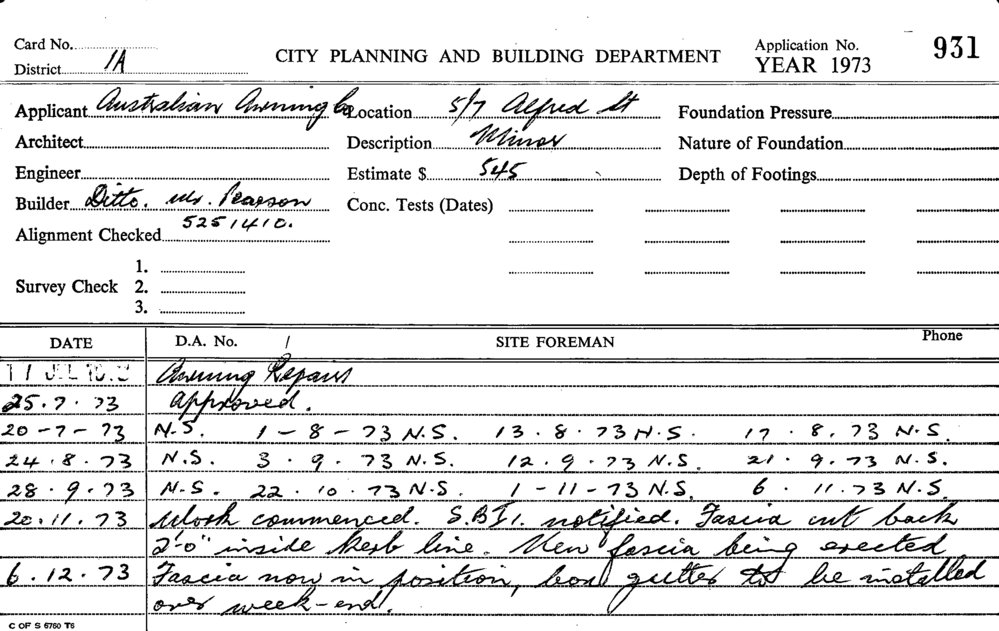 Card No. CITY PLANNING AND BUILDING DEPARTMENT Application No. 931
District 1A YEAR 1973
Applicant Australian Awning Co Location 5/7 Alfred St Foundation Pressure
Architect Description Minor Nature of Foundation
Engineer Estimate $ 545 Depth of Footings
Builder Ditto. Mr. Pearson Conc. Tests (Dates)
5251410.
Alignment Checked
1.
Survey Check 2.
3.
DATE D.A. No. / SITE FOREMAN Phone
Awning Repairs
25.7.73 Approved.
20-7-73 N.S. 1-8-73 N.S. 13.8.73 N.S. 17.8.73 N.S.
24.8.73 N.S. 3.9.73 N.S. 12.9.73 N.S. 21.9.73 N.S.
28.9.73 N.S. 22.10.73 N.S. 1-11-73 N.S. 6.11.73 N.S.
20.11.73 Work commenced. S.B.I. notified. Fascia cut back
2'-0" inside kerb line. New fascia being erected
6.12.73 Fascia now in position, box gutter to be installed
over week-end.
C OF S 6760 T6